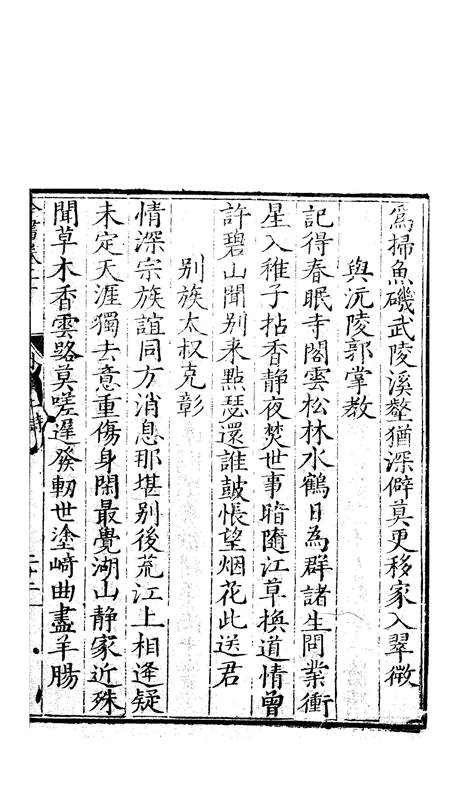 爲掃魚磯武陵溪壑猶深僻莫更移家入翠微
與沅陵郭掌教
記得春眠寺閣雲松林水鶴日為群諸生問業衝
星入稚子拈香静夜焚世事暗隨江草換道情曾
許碧山聞别来點瑟還誰鼓悵望烟花此送君
别族太叔克彰
情深宗族誼同方消息那堪别後荒江上相逢疑
未定天涯獨去意重傷身閑最覺湖山静家近殊
聞草木香雲路莫嗟遲發軔世塗崎曲盡羊腸